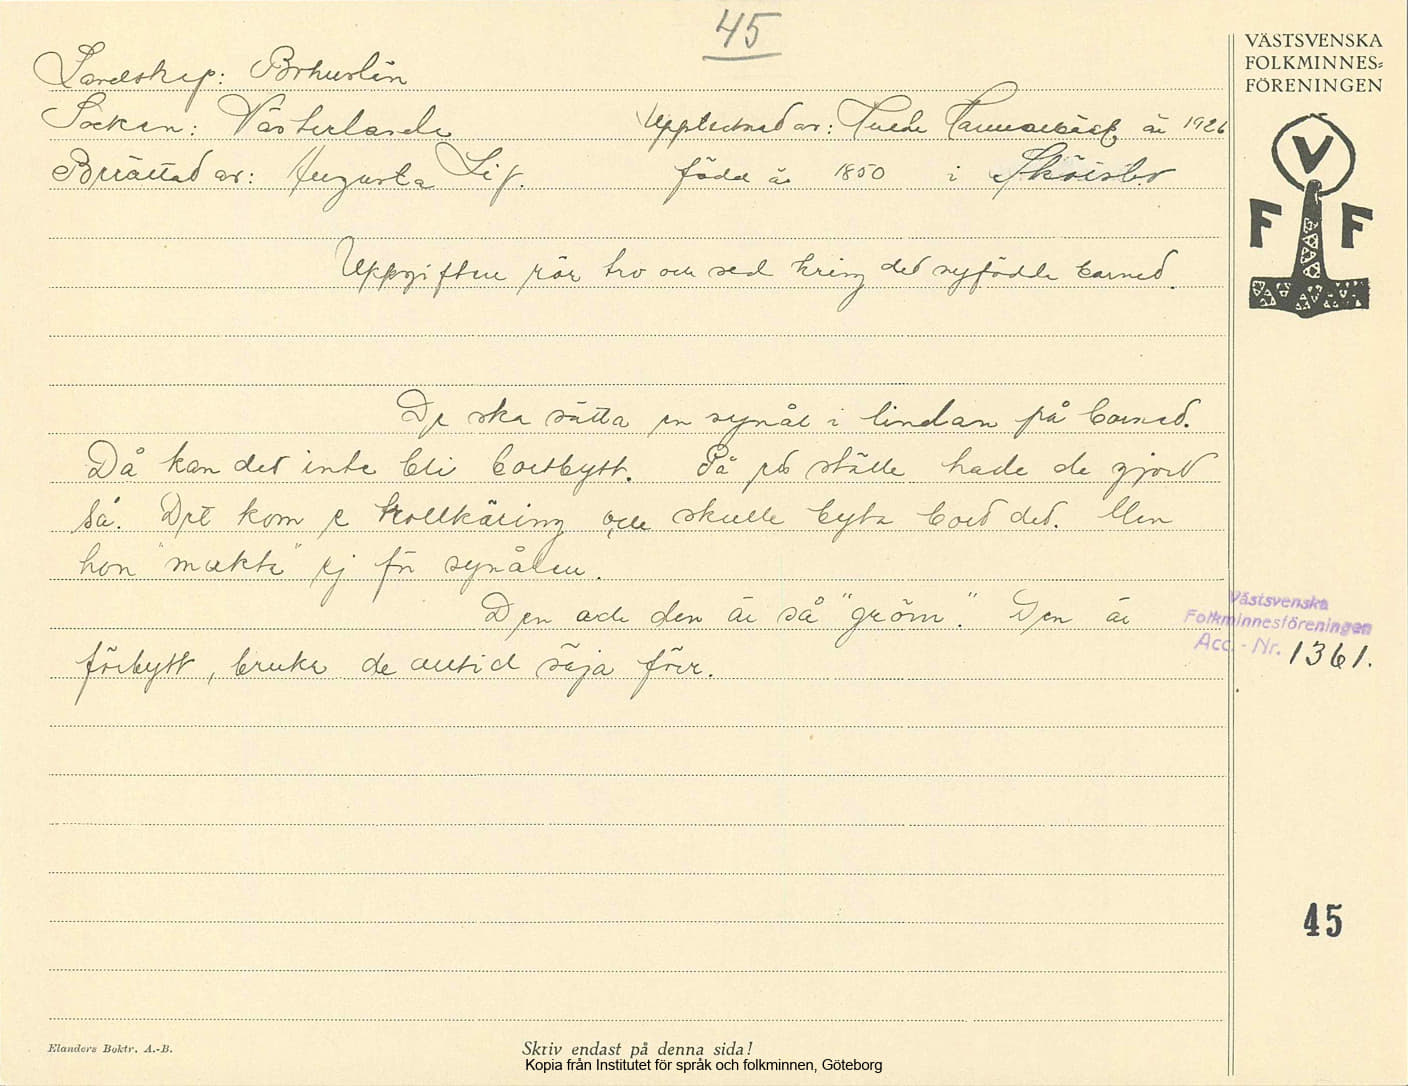 45
VÄSTSVENSKA
FOLKMINNES-
FÖRENINGEN
Landskap: Bohuslän
Socken: Västerlanda Upptecknad av: Tarde år 1926
Berättad av: Augusta Lif. född år 1850 i
V
F F
Uppgiften rör tro och sed kring det nyfödda barnet.
De ska sätta en synål i lindan på barnet.
Då kan det inte bli bortbytt. På ett ställe hade de gjort
så. Det kom e trollkäring och skulle byta bort det. Men
hon "mäkta" ej för synålen.
Den där den är så "gröm". Den är
förbytt, bruka de alltid säja förr.
Västsvenska
Folkminnesföreningen
Acc.-Nr. 1361.
45
Elanders Boktr. A.-B.
Skriv endast på denna sida!
Kopia från Institutet för språk och folkminnen, Göteborg